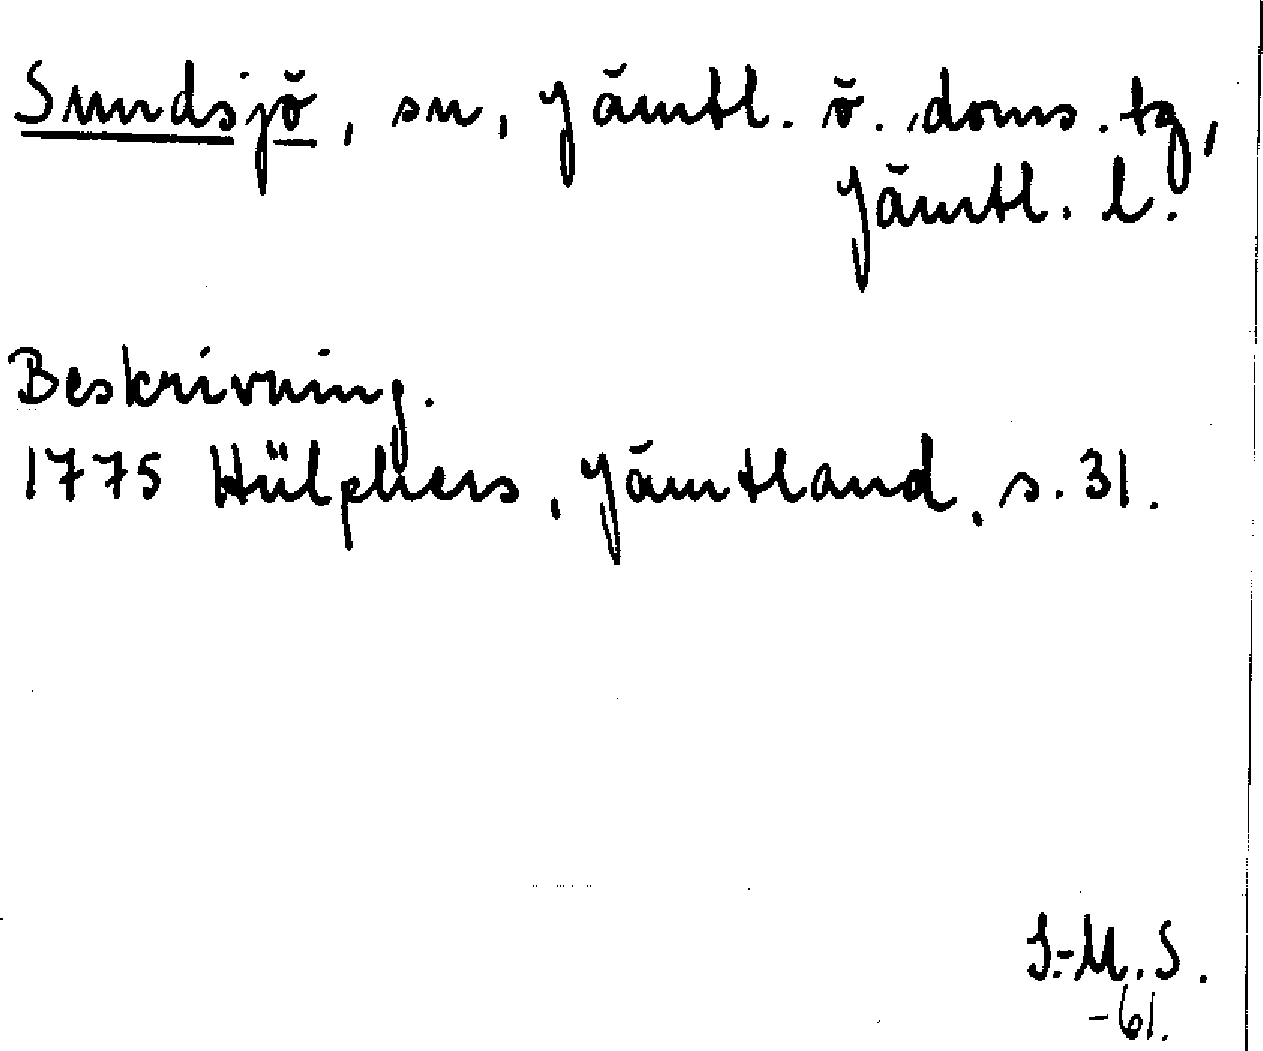 Sundsjö, sn, Jämtl. ö. doms. tg,
Jämtl. l.
Beskrivning.
1775 Hülphers, Jämtland, s. 31.
I.-M. S.
-61.